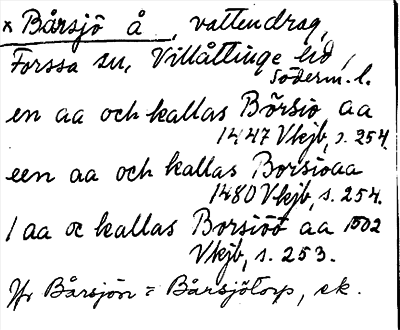 x Bårsjö å, vattendrag,
Forssa sn, Villåttinge hd,
Söderm. l.
en aa och kallas Börsio aa
1447 Vkjb, s. 254.
een aa och kallas Borsioaa
1480 Vkjb, s. 254.
1 aa oc kallas Borsiöö aa 1502
Vkjb, s. 253.
Jfr Bårsjön = Bårsjötorp, ek.